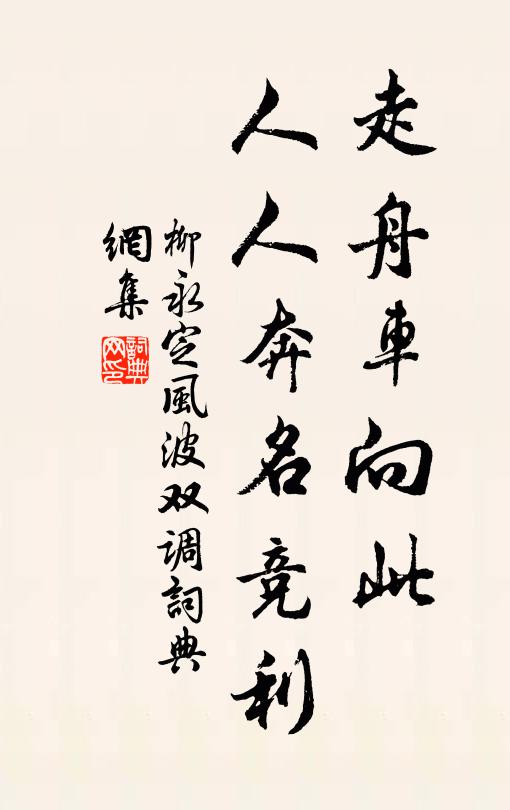 走舟車向此
人人奔名競利
柳永定風波双调詞典
網集
詞典網印